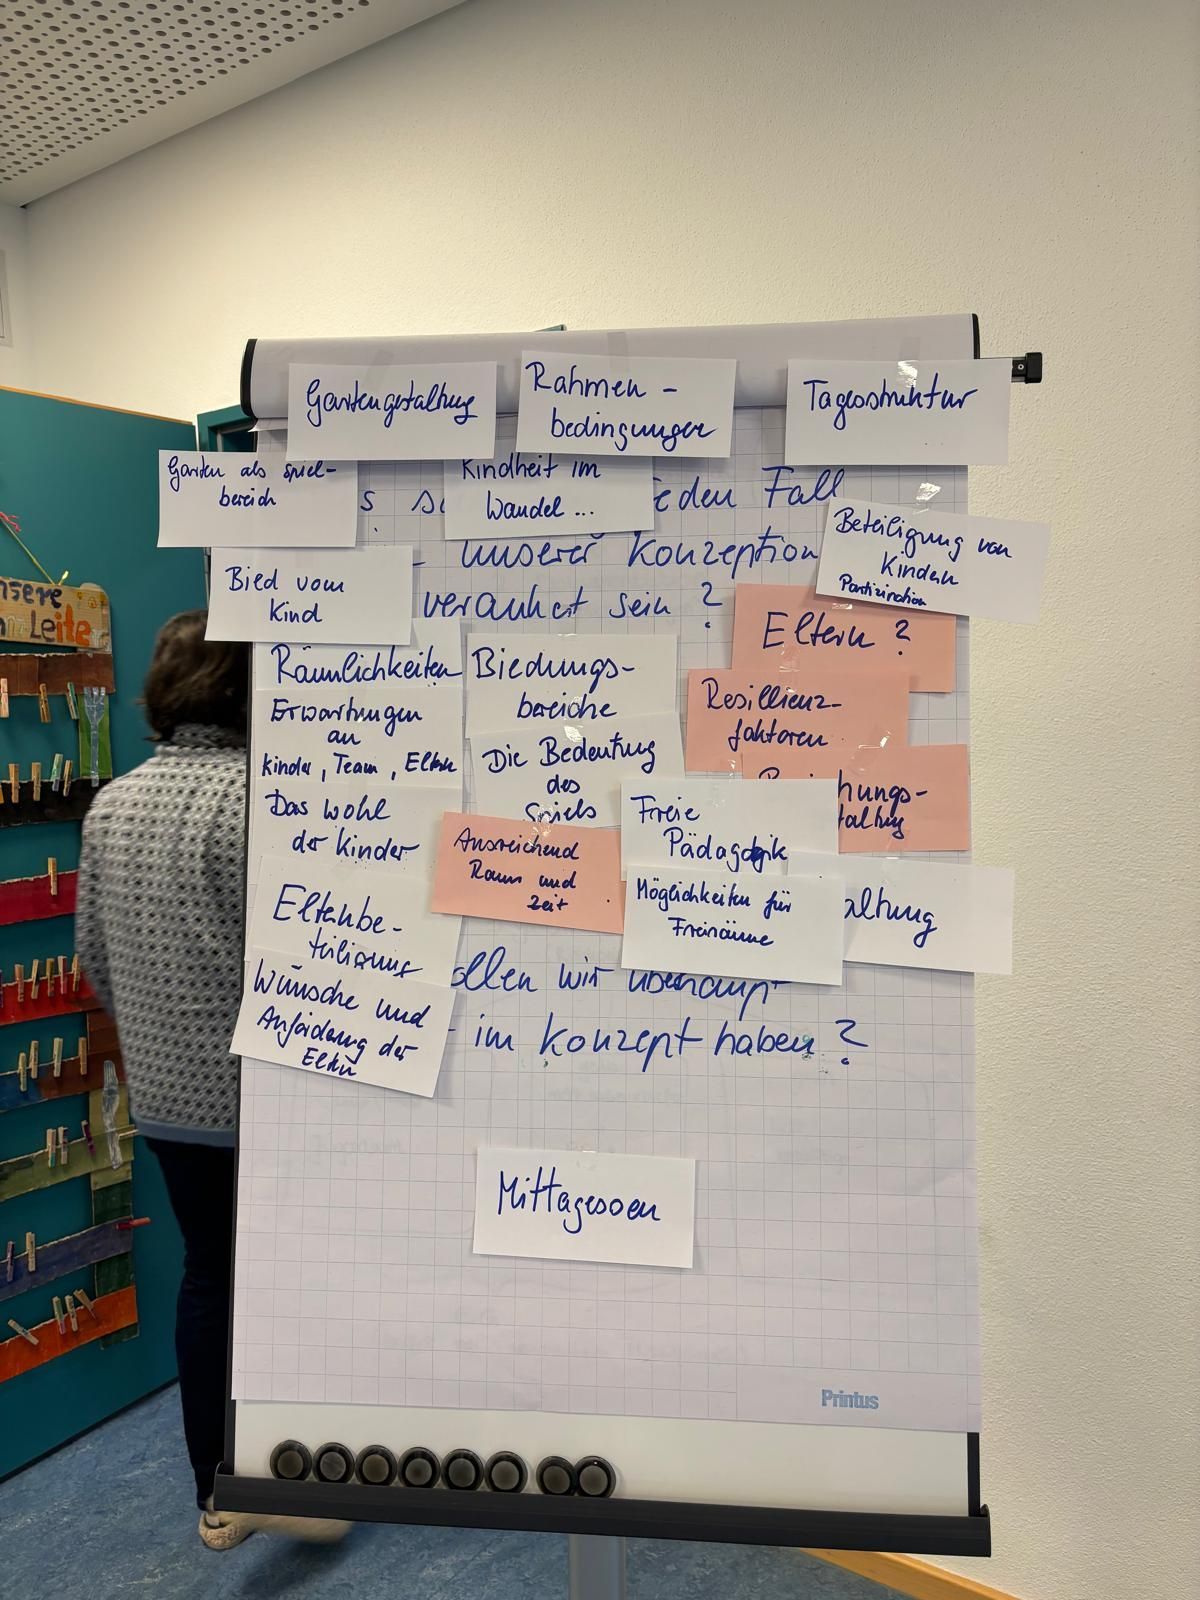 Gartengestaltung
Rahmen-
bedingungen
Tagesstruktur
Garten als Spiel-
bereich
Kindheit im
Wandel ...
eden Fall
unserer Konzeption
verankert sein ?
Beteiligung von
Kindern
Partizipation
Bied vom
Kind
Eltern ?
Räumlichkeiten
Biedungs-
bereiche
Resillienz-
faktoren
Erwartungen
an
Kinder, Team, Eltern
Die Bedeutung
des
Spiels
hungs-
taltung
Das wohl
der Kinder
Freie
Pädagogik
Ausreichend
Raum und
Zeit
Möglichkeiten für
Freiräume
altung
Elternbe-
teiligung
ollen wir überhaupt
im Konzept haben ?
Wünsche und
Anforderung der
Eltern
Mittagessen
Printus
nsere
Leite